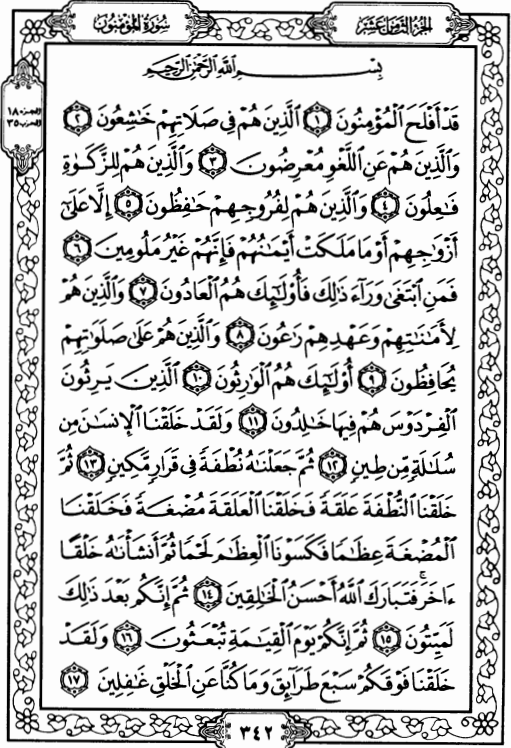 سُورَةُ المُؤْمِنُونَ
الجُزْءُ الثَّامِنَ عَشَرَ
الجزء ١٨
الحزب ٣٥
بِسْمِ اللَّهِ الرَّحْمَٰنِ الرَّحِيمِ
قَدْ أَفْلَحَ الْمُؤْمِنُونَ ١ الَّذِينَ هُمْ فِي صَلَاتِهِمْ خَاشِعُونَ ٢
وَالَّذِينَ هُمْ عَنِ اللَّغْوِ مُعْرِضُونَ ٣ وَالَّذِينَ هُمْ لِلزَّكَوٰةِ
فَاعِلُونَ ٤ وَالَّذِينَ هُمْ لِفُرُوجِهِمْ حَافِظُونَ ٥ إِلَّا عَلَىٰ
أَزْوَاجِهِمْ أَوْ مَا مَلَكَتْ أَيْمَانُهُمْ فَإِنَّهُمْ غَيْرُ مَلُومِينَ ٦
فَمَنِ ابْتَغَىٰ وَرَاءَ ذَٰلِكَ فَأُولَٰئِكَ هُمُ الْعَادُونَ ٧ وَالَّذِينَ هُمْ
لِأَمَانَاتِهِمْ وَعَهْدِهِمْ رَاعُونَ ٨ وَالَّذِينَ هُمْ عَلَىٰ صَلَوَاتِهِمْ
يُحَافِظُونَ ٩ أُولَٰئِكَ هُمُ الْوَارِثُونَ ١٠ الَّذِينَ يَرِثُونَ
الْفِرْدَوْسَ هُمْ فِيهَا خَالِدُونَ ١١ وَلَقَدْ خَلَقْنَا الْإِنسَانَ مِن
سُلَالَةٍ مِّن طِينٍ ١٢ ثُمَّ جَعَلْنَاهُ نُطْفَةً فِي قَرَارٍ مَّكِينٍ ١٣ ثُمَّ
خَلَقْنَا النُّطْفَةَ عَلَقَةً فَخَلَقْنَا الْعَلَقَةَ مُضْغَةً فَخَلَقْنَا
الْمُضْغَةَ عِظَامًا فَكَسَوْنَا الْعِظَامَ لَحْمًا ثُمَّ أَنشَأْنَاهُ خَلْقًا
ءَاخَرَ ۚ فَتَبَارَكَ اللَّهُ أَحْسَنُ الْخَالِقِينَ ١٤ ثُمَّ إِنَّكُم بَعْدَ ذَٰلِكَ
لَمَيِّتُونَ ١٥ ثُمَّ إِنَّكُمْ يَوْمَ الْقِيَامَةِ تُبْعَثُونَ ١٦ وَلَقَدْ
خَلَقْنَا فَوْقَكُمْ سَبْعَ طَرَائِقَ وَمَا كُنَّا عَنِ الْخَلْقِ غَافِلِينَ ١٧
٣٤٢